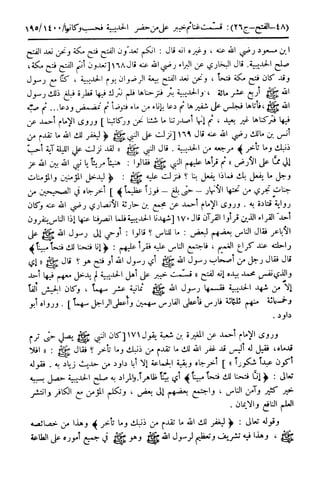 (٤٨-الفتح-ج٢٦): قسمت غنائم خيبر على من حضر الحديبية فحسب وكانوا ١٩٥/١٤٠٠
ابن مسعود رضي الله عنه ، وغيره انه قال : انكم تعدون الفتح فتح مكة ونحن نعد الفتح
صلح الحديبية. قال البخاري عن البراء رضي الله عنه قال ١٦٨ [تعدون أنتم الفتح فتح مكة،
وقد كان فتح مكة فتحاً ، ونحن نعد الفتح بيعة الرضوان يوم الحديبية ، كنا مع رسول
الله ﷺ أربع عشر مائة ، والحديبية بئر فنزحناها فلم نترك فيها قطرة فبلغ ذلك رسول
الله ﷺ، فأتاها فجلس على شفيرها ثم دعا بإناء من ماء فتوضأ ثم تمضمض ودعا... ثم صبه
فيها فتركناها غير بعيد ، ثم إنها أصدرتنا ما شئنا نحن وركائبنا] وروى الإمام أحمد عن
أنس بن مالك رضي الله عنه قال ١٦٩ [نزلت على النبي ﷺ ﴿ ليغفر لك الله ما تقدم من
ذنبك وما تأخر ﴾ مرجعه من الحديبية . قال النبي ﷺ « لقد نزلت علي الليلة آية أحب
إلي مما على الأرض » ثم قرأها عليهم النبي ﷺ فقالوا : هنيئاً مريئاً يا نبي الله بين الله عز
وجل ما يفعل بك فماذا يفعل بنا ؟ فنزلت عليه ﷺ : ﴿ ليدخل المؤمنين والمؤمنات
جنات تجري من تحتها الأنهار – حتى بلغ – فوزاً عظيماً﴾ ] أخرجاه في الصحيحين من
رواية قتادة به . وروى الإمام أحمد عن مجمع بن حارثة الأنصاري رضي الله عنه وكان
أحد القراء الذين قرأوا القرآن قال ١٧٠ [شهدنا الحديبية فلما انصرفنا عنها إذا الناس ينفرون
الأباعر فقال الناس بعضهم لبعض : ما للناس ؟ قالوا : أوحي إلى رسول الله ﷺ على
راحلته عند كراع الغميم ، فاجتمع الناس عليه فقرأ عليهم : ﴿ إنا فتحنا لك فتحاً مبيناً﴾
قال فقال رجل من أصحاب رسول الله ﷺ أي رسول الله أو فتح هو ؟ قال ﷺ « إي
والذي نفس محمد بيده إنه لفتح » قسمت خيبر على أهل الحديبية لم يدخل معهم فيها أحد
إلا من شهد الحديبية فقسمها رسول الله ﷺ ثمانية عشر سهماً ، وكان الجيش ألفاً
وخمسمائة منهم ثلثمائة فارس فأعطى الفارس سهمين وأعطى الراجل سهماً ] . ورواه أبو
داود .
وروى الإمام أحمد عن المغيرة بن شعبة يقول ١٧١ [كان النبي ﷺ يصلي حتى ترم
قدماه، فقيل له أليس قد غفر الله لك ما تقدم من ذنبك وما تأخر ؟ فقال ﷺ : « افلا
أكون عبداً شكوراً » ] أخرجاه وبقية الجماعة إلا أبا داود من حديث زياد به . فقوله
تعالى : ﴿ إنا فتحنا لك فتحاً مبيناً﴾ أي بيناً ظاهراً، والمراد به صلح الحديبية حصل بسببه
خير كثير وآمن الناس ، واجتمع بعضهم إلى بعض ، وتكلم المؤمن مع الكافر وانتشر
العلم النافع والايمان .
وقوله تعالى : ﴿ ليغفر لك الله ما تقدم من ذنبك وما تأخر ﴾ وهذا من خصائصه
ﷺ ، وهذا فيه تشريف وتعظيم لرسول الله ﷺ وهو ﷺ في جميع أموره على الطاعة